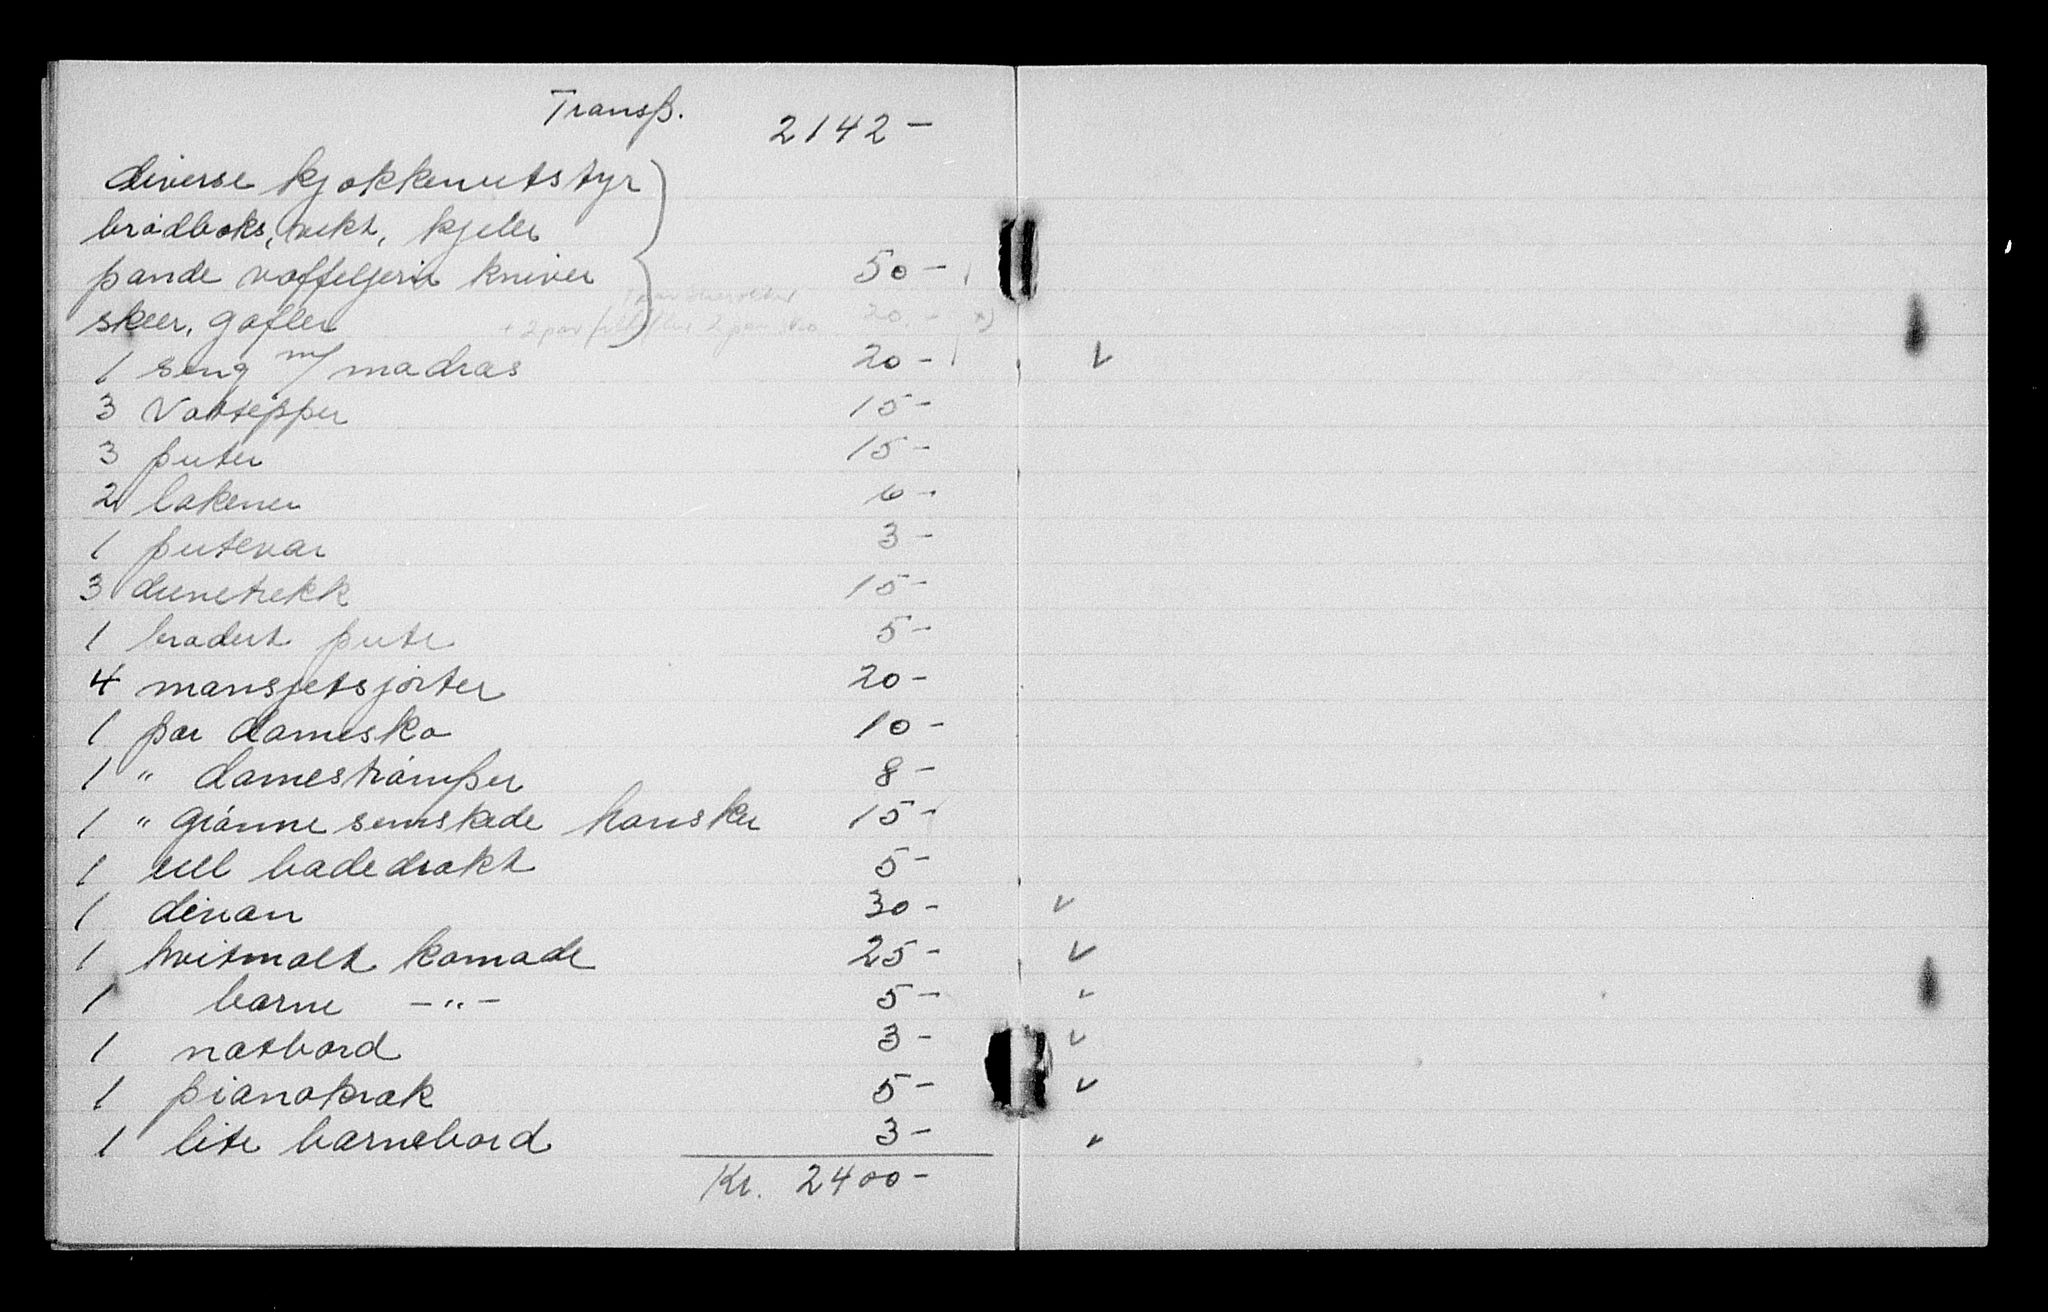 Transp. 2142 -
diverse kjøkkenutstyr
brødboks, vekt, kjeller
pande vaffeljern kniver 50 -
skeer, gafler + 2 par 2 par sko 20 -
1 seng m/ madras 20 - v
3 Vattepper 15 -
3 puter 15 -
2 lakener 6 -
1 putevar 3 -
3 dunetrekk 15 -
1 brodert pute 5 -
4 mansjetsjorter 20 -
1 par damesko 10 -
1 " damestrømper 8 -
1 " grønne semskede hansker 15 -
1 ull badedrakt 5 -
1 divan 30 - v
1 hvitmalt komode 25 - v
1 barne - " - 5 - v
1 natbord 3 - v
1 pianokrak 5 - v
1 lite barnebord 3 - v
Kr. 2400 -